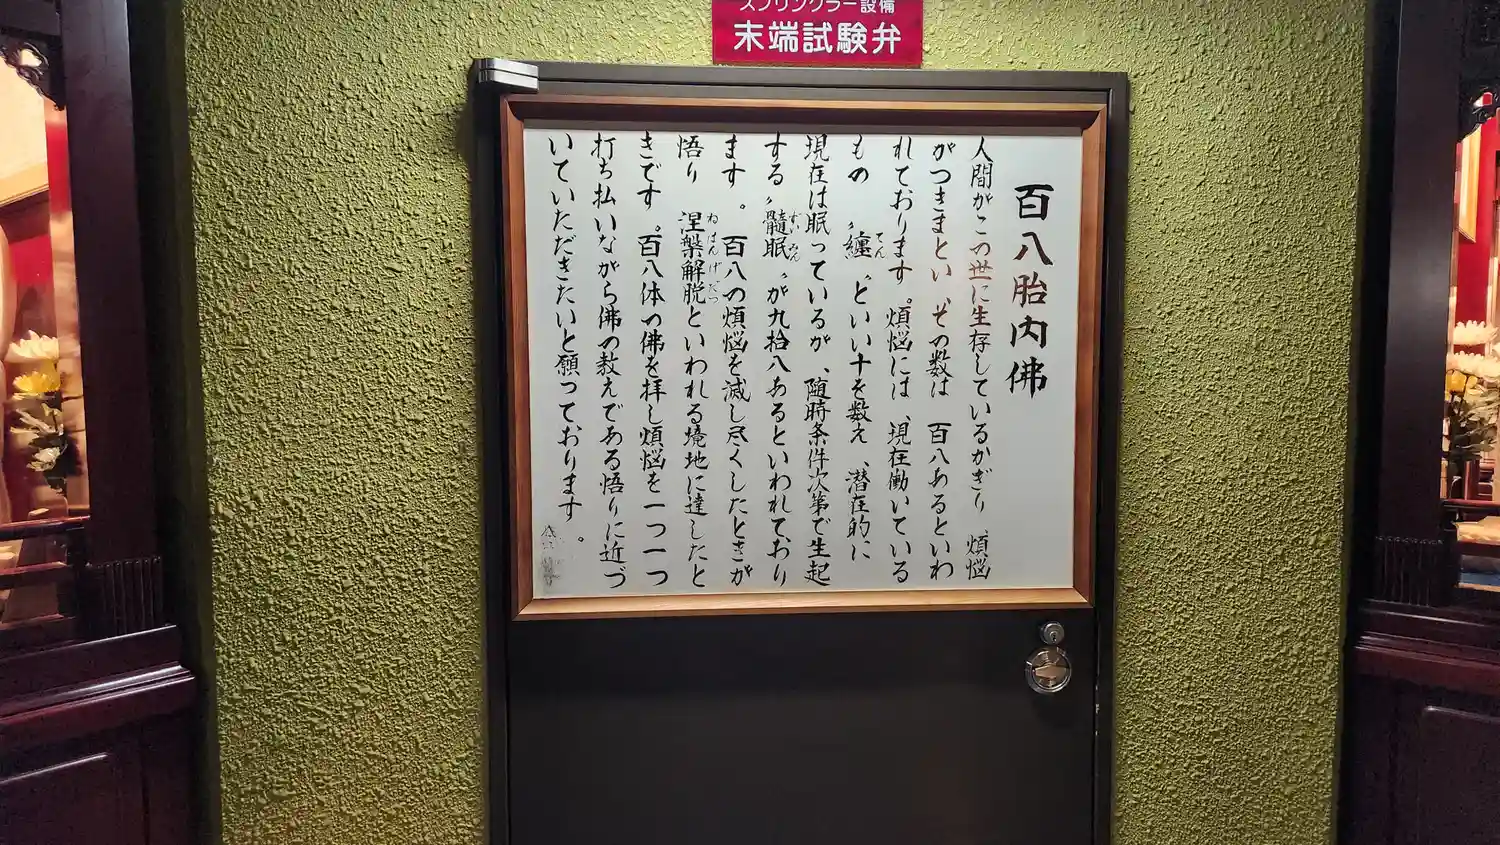 スプリンクラー設備
末端試験弁
百八胎内佛
人間がこの世に生存しているかぎり 煩悩
がつきまとい、その数は 百八あるといわ
れております。煩悩には、現在働いている
もの 〝纏〟といい十を数え、潜在的に
てん
現在は眠っているが、随時条件次第で生起
する〝髓眠〟が九拾八あるといわれており
ずいみん
ます。百八の煩悩を滅し尽くしたときが
悟り 涅槃解脱といわれる境地に達したと
ねはんげだつ
きです。百八体の佛を拝し煩悩を一つ一つ
打ち払いながら佛の教えである悟りに近づ
いていただきたいと願っております。